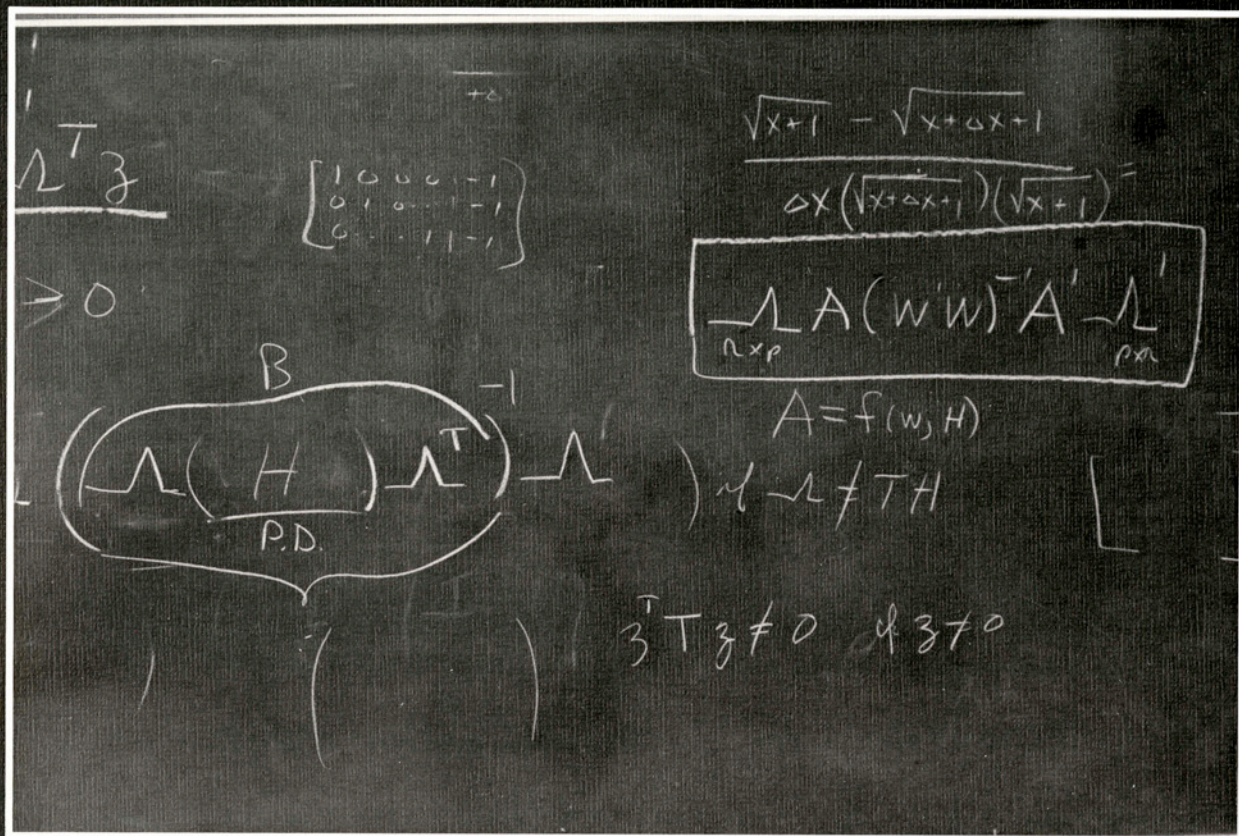 Λᵀ z
> 0
+Δ
[1 0 0 0 . 1 -1
0 1 0 . . 1 -1
0 . . . 1 1 -1]
√x+1 - √x+Δx+1
Δx(√x+Δx+1)(√x+1) =
Λ A(W'W)⁻¹A' Λ'
r×p p×r
A = f(W, H)
B
(Λ( H )Λᵀ)⁻¹ Λ ) if Λ ≠ TH
P.D.
( )
zᵀ T z ≠ 0 if z ≠ 0